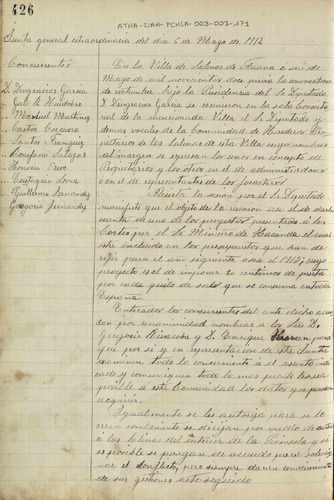 426
ATHA-DAH-FCHSA-003-003-171
Junta general extraordinaria del dia 6 de Mayo de 1912
Concurrentes
D. Deogracias Garcia
" Manuel Martinez
" Bonifacio Salazar
" Eustaquio
" Guillermo Fernandez
" Gregorio Fernandez
En la Villa de Salinas de Añana a seis de
Mayo de mil novecientos doce previa la convocatoria
de costumbre bajo la Presidencia del Sr Diputado
D Deogracias Garcia se reunieron en la sala Consistorial
de la mencionada Villa el Sr Diputado y
demas vocales de la Comunidad de Herederos Pro-
pietarios de las Salinas de esta Villa cuyos nombres
al margen se espresan los unos en concepto de
Propietarios y los otros en el de administradores
o en el de representantes de los forasteros
Abierta la sesion por el Sr Diputado
manifesto que el objeto de la reunion era el de dar
cuenta de uno de los proyectos presentado a las
Cortes por el Sr Ministro de Hacienda el cual
esta incluido en los presupuestos que han de
regir para el año siguiente o sea el 1913; cuyo
proyecto es el de imponer 20 centimos de peseta
por cada quilo de sal que se consuma en toda
España.
Enterados los concurrentes del ante dicho
por unanimidad nombrar a los Sres D.
Gregorio y D. Enrique para
que por si y en representacion de esta Junta
examinen todo lo concerniente a el asunto indi-
cado y comuniquen todo lo mas pronto que sea
posible a esta Comunidad los datos que puedan
adquirir.
Igualmente se les autoriza para si lo
creen conveniente se dirijan por medio de
a las Salinas del interior de la Peninsula y si
es posible se pongan de acuerdo para solucio-
nar el conflicto, pero siempre daran conocimiento
de sus gestiones acto seguido